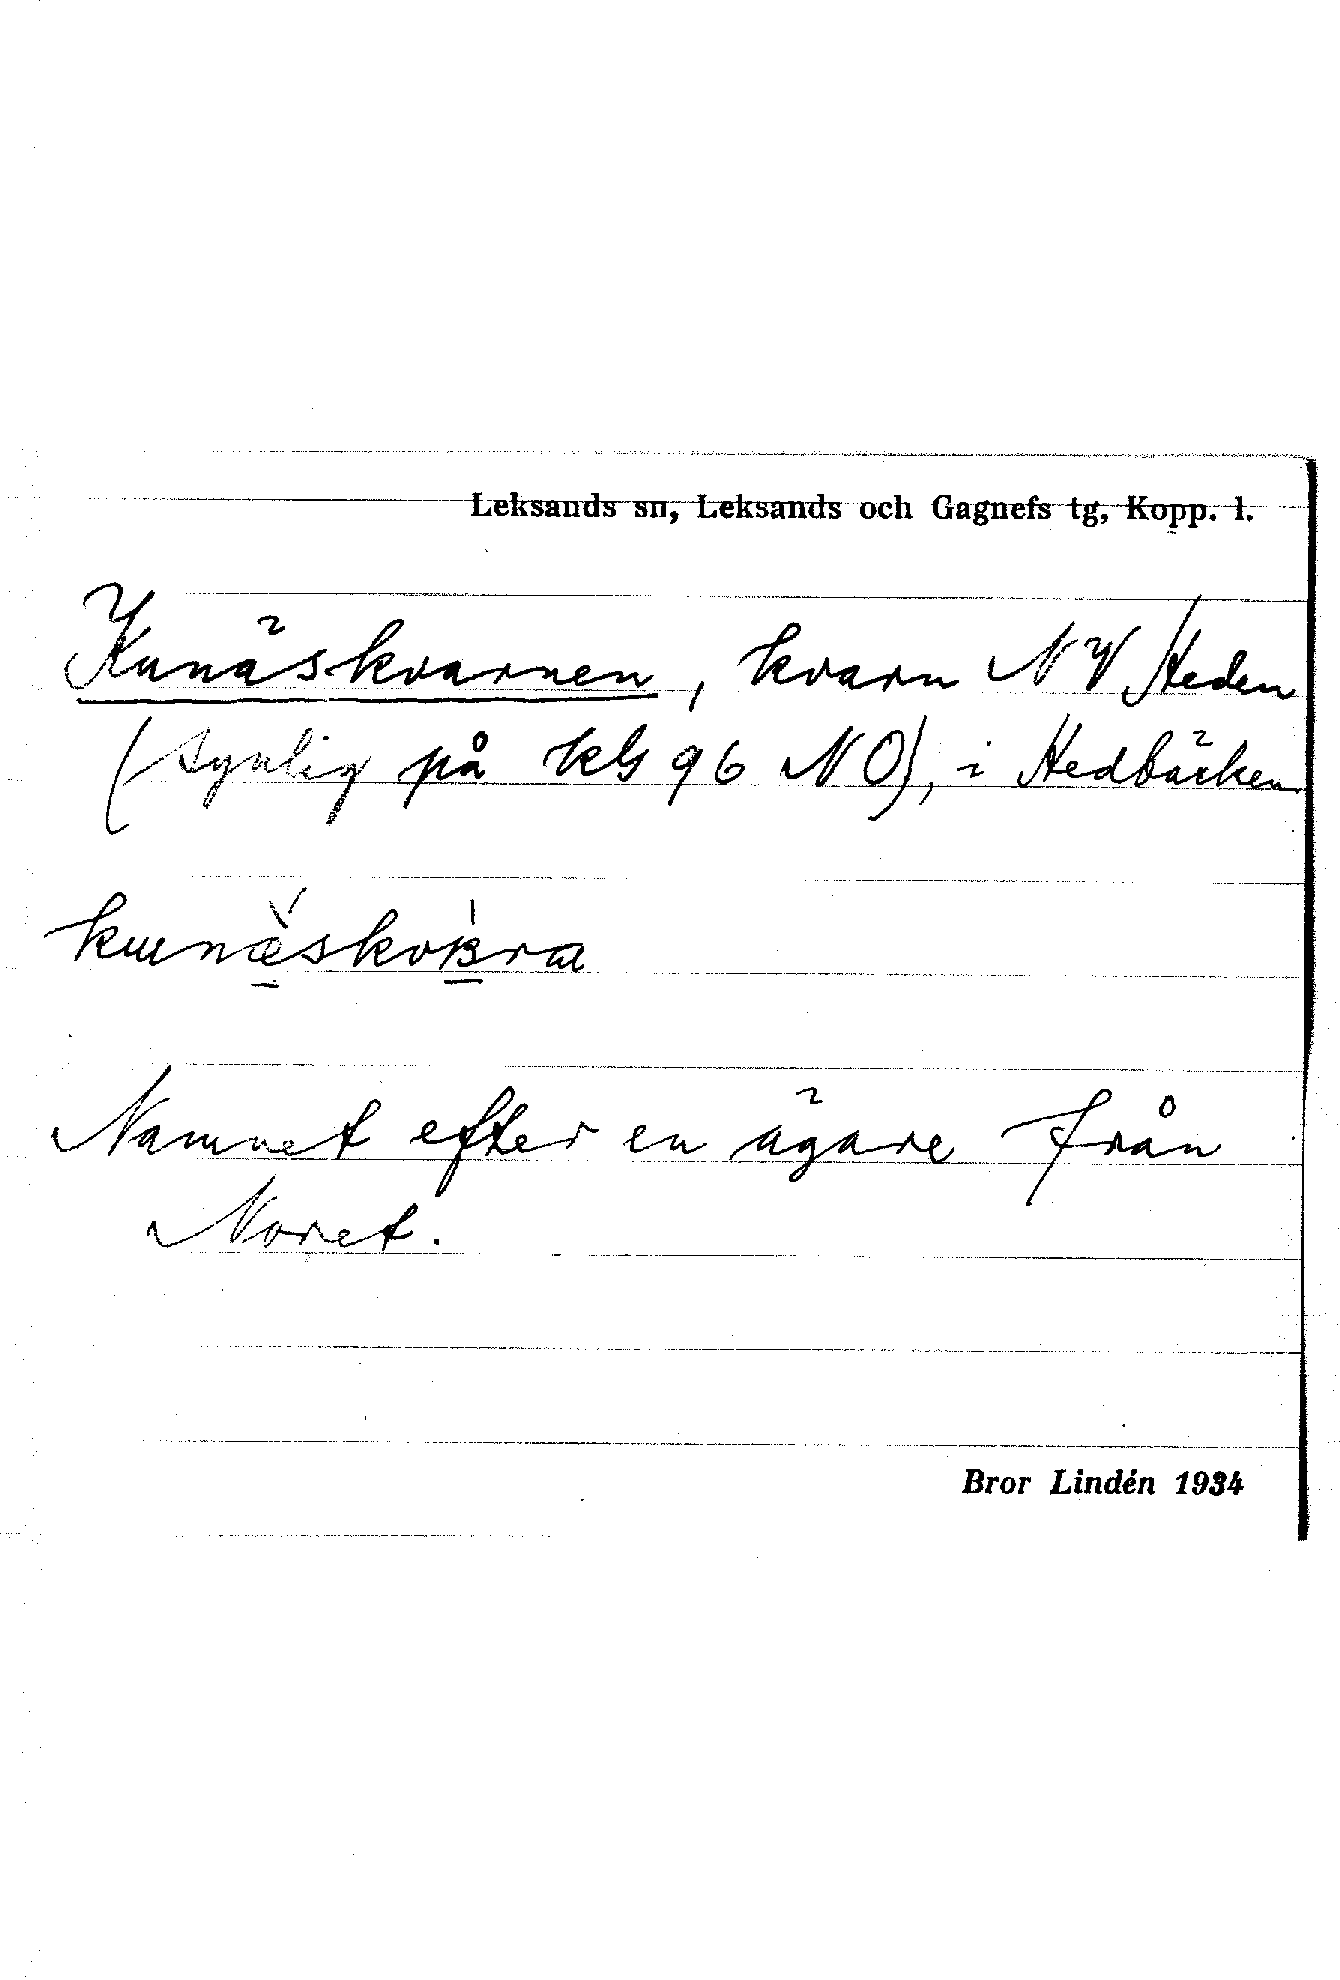 Leksands sn, Leksands och Gagnefs tg, Kopp. l.
Kunäskvarnen, kvarn NV Heden
(synlig på kbl 96 NO), i Hedbäcken
Namnet efter en ägare från
Noret.
Bror Lindén 1934